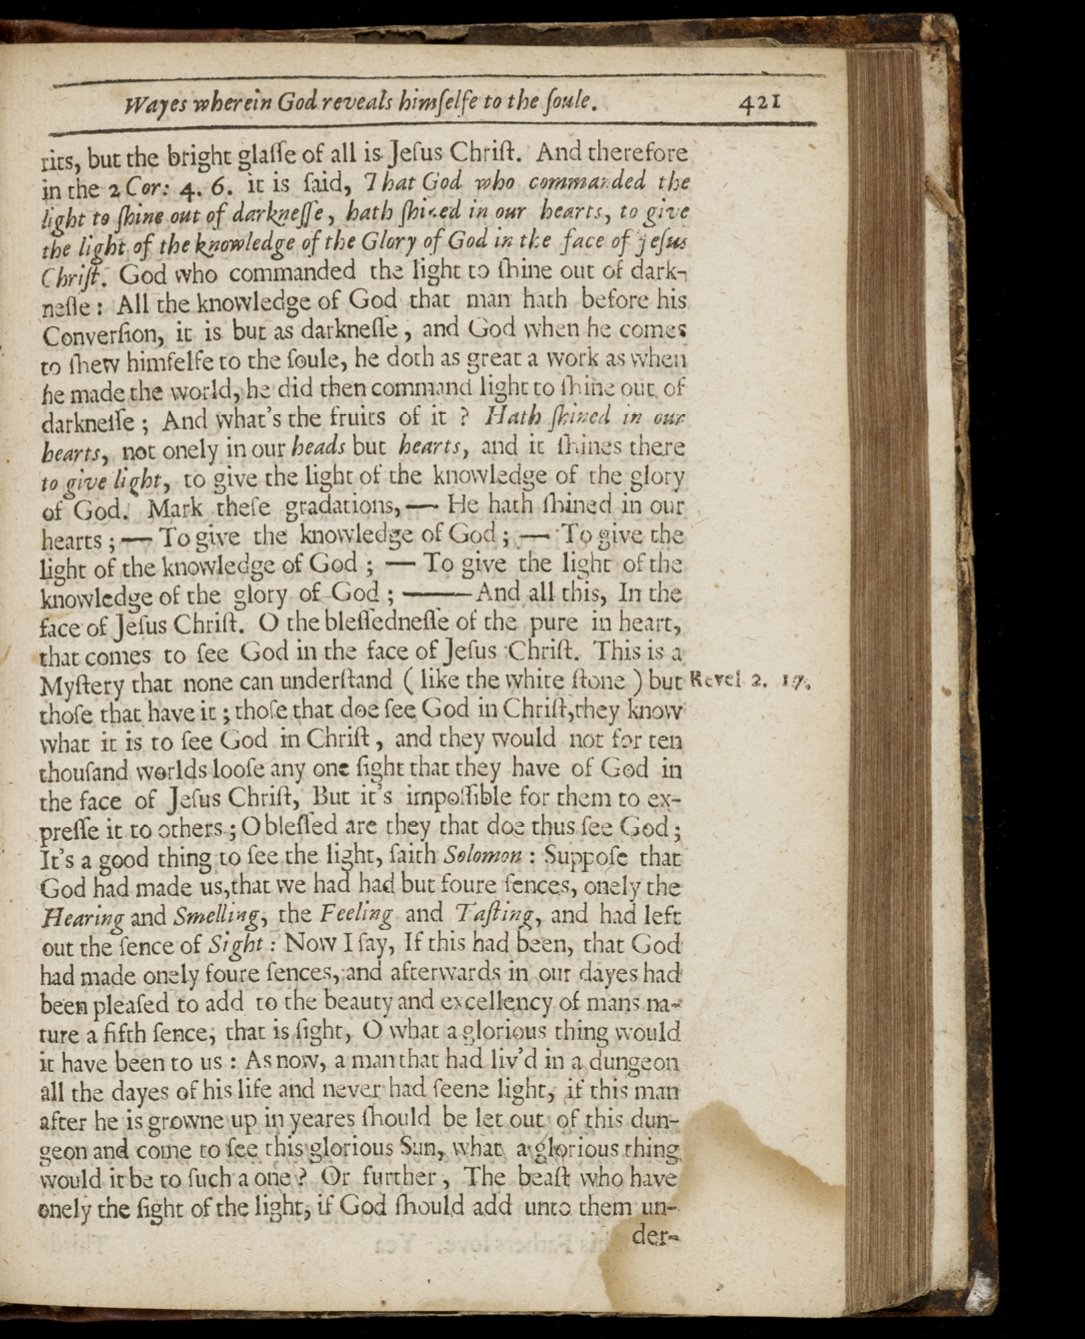 Wayes wherein God reveals himſelfe to the ſoule. 421
rits, but the bright glaſſe of all is Jeſus Chriſt. And therefore
in the 2 Cor: 4. 6. it is ſaid, That God who commanded the
light to ſhine out of darkneſſe, hath ſhined in our hearts, to give
the light of the knowledge of the Glory of God in the face of Jeſus
Chriſt. God who commanded the light to ſhine out of dark-
neſſe: All the knowledge of God that man hath before his
Converſion, it is but as darkneſſe, and God when he comes
to ſhew himſelfe to the ſoule, he doth as great a work as when
he made the world, he did then command light to ſhine out of
darkneſſe; And what's the fruits of it? Hath ſhined in our
hearts, not onely in our heads but hearts, and it ſhines there
to give light, to give the light of the knowledge of the glory
of God. Mark theſe gradations, — He hath ſhined in our
hearts; — To give the knowledge of God; — To give the
light of the knowledge of God; — To give the light of the
knowledge of the glory of God; —— And all this, In the
face of Jeſus Chriſt. O the bleſſedneſſe of the pure in heart,
that comes to ſee God in the face of Jeſus Chriſt. This is a
Myſtery that none can underſtand (like the white ſtone) but Revel 2. 17.
thoſe that have it; thoſe that doe ſee God in Chriſt, they know
what it is to ſee God in Chriſt, and they would not for ten
thouſand worlds looſe any one ſight that they have of God in
the face of Jeſus Chriſt, But it's impoſſible for them to ex-
preſſe it to others; O bleſſed are they that doe thus ſee God;
It's a good thing to ſee the light, ſaith Solomon: Suppoſe that
God had made us, that we had had but foure ſences, onely the
Hearing and Smelling, the Feeling and Taſting, and had left
out the ſence of Sight: Now I ſay, If this had been, that God
had made onely foure ſences, and afterwards in our dayes had
been pleaſed to add to the beauty and excellency of mans na-
ture a fifth ſence, that is ſight, O what a glorious thing would
it have been to us: As now, a man that had liv'd in a dungeon
all the dayes of his life and never had ſeene light, if this man
after he is growne up in yeares ſhould be let out of this dun-
geon and come to ſee this glorious Sun, what a glorious thing
would it be to ſuch a one? Or further, The beaſt who have
onely the ſight of the light, if God ſhould add unto them un-
der-